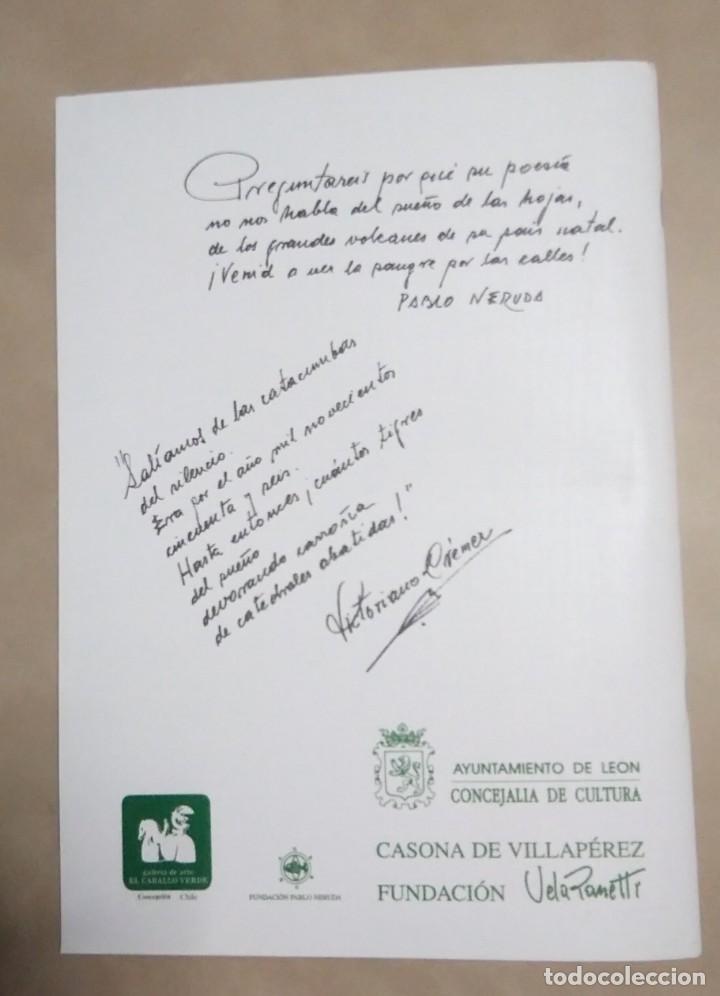 Preguntareis por qué su poesía
no nos habla del sueño de las hojas,
de los grandes volcanes de su país natal.
¡Venid a ver la sangre por las calles!
PABLO NERUDA
"Salíamos de las catacumbas
del silencio.
Era por el año mil novecientos
cincuenta y seis.
Hasta entonces, ¡cuántos tigres
del sueño
devorando carroña
de catedrales abatidas!"
Victoriano Crémer
AYUNTAMIENTO DE LEON
CONCEJALIA DE CULTURA
CASONA DE VILLAPÉREZ
FUNDACIÓN Vela Zanetti
galería de arte
EL CABALLO VERDE
Concepción Chile
FUNDACIÓN PABLO NERUDA
todocoleccion